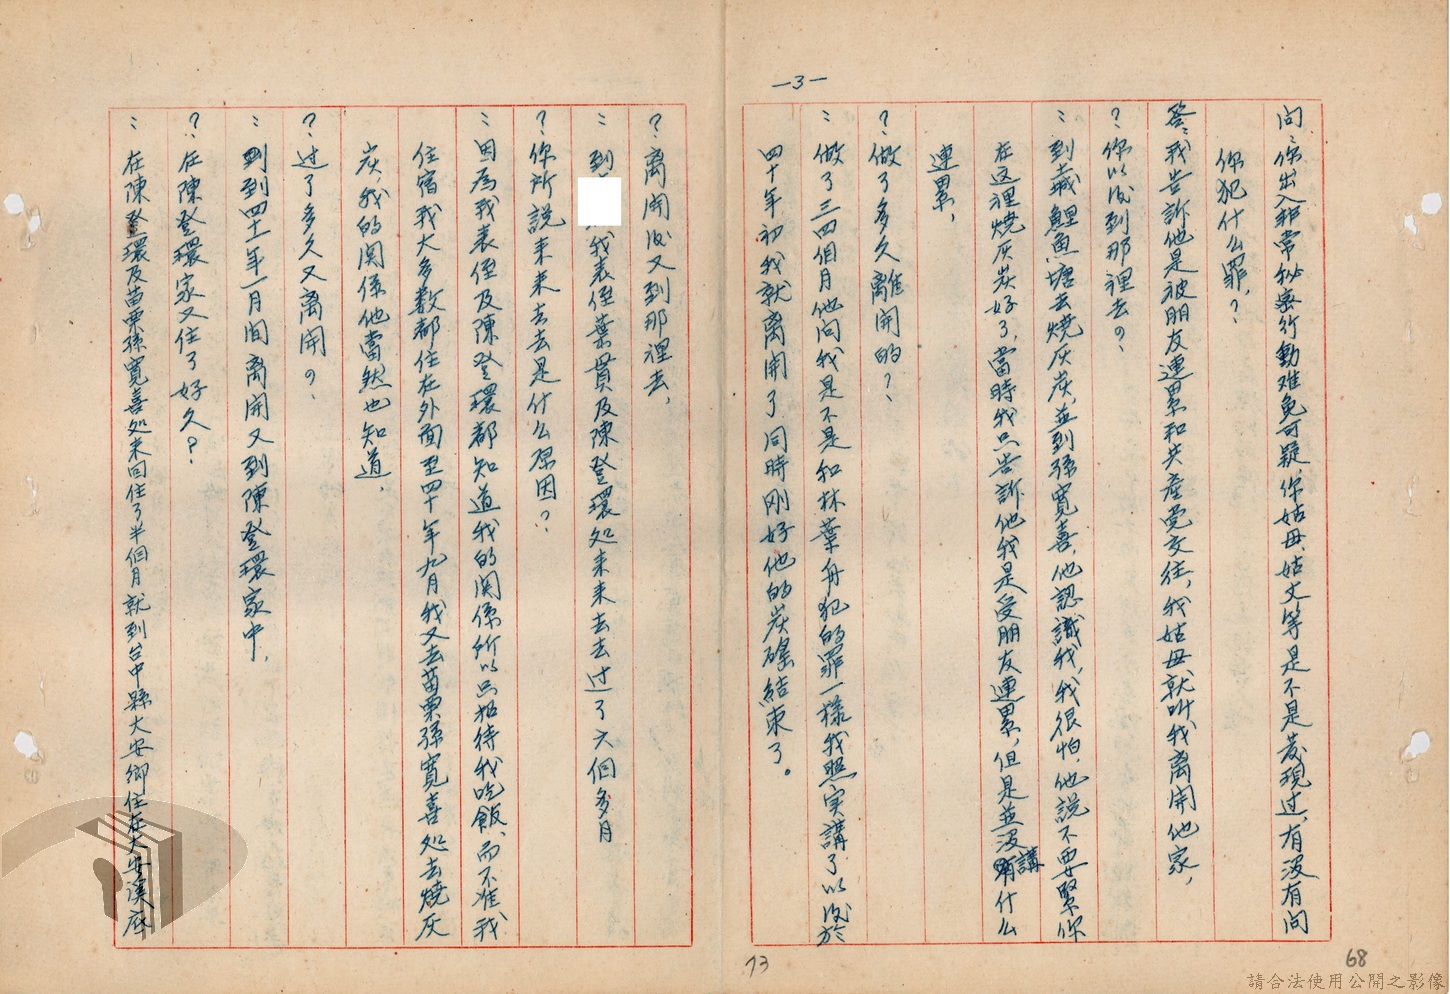 —3—
問:你出入非常秘密行動难免可疑,你姑母、姑丈等是不是发現过,有没有問
你犯什么罪,?
答:我告訴他是被朋友連累和共產党交往,我姑母就叫我离開他家,
?:你以后到那裡去?
::到土城鯉魚塘去燒灰炭,並到孫寬喜,他認識我,我很怕,他説不要緊你
在这裡燒灰炭好了,當時我只告訴他我是受朋友連累,但是並没講什么
連累,
?:做了多久離開的?
::做了三四個月他問我是不是和林葉舟犯的罪一樣我照实講了以后於
四十年初我就离開了同時刚好他的炭磘結束了。
?:离開后又到那裡去,
::到 我表侄葉貫及陳登環処来来去去过了六個多月
?:你所説来来去去是什么原因?
::因為我表侄及陳登環都知道我的関係所以只招待我吃飯、而不准我
住宿我大多数都住在外面至四十年九月我又去苗栗孫寬喜処去燒灰
炭,我的関係他當然也知道,
?:过了多久又离開?
::到到四十一年一月间离開又到陳登環家中,
?:在陳登環家又住了好久?
::在陳登環及苗栗孫寬喜処来回住了半個月就到台中縣大安鄉住在大安溪底
73
68
請合法使用公開之影像